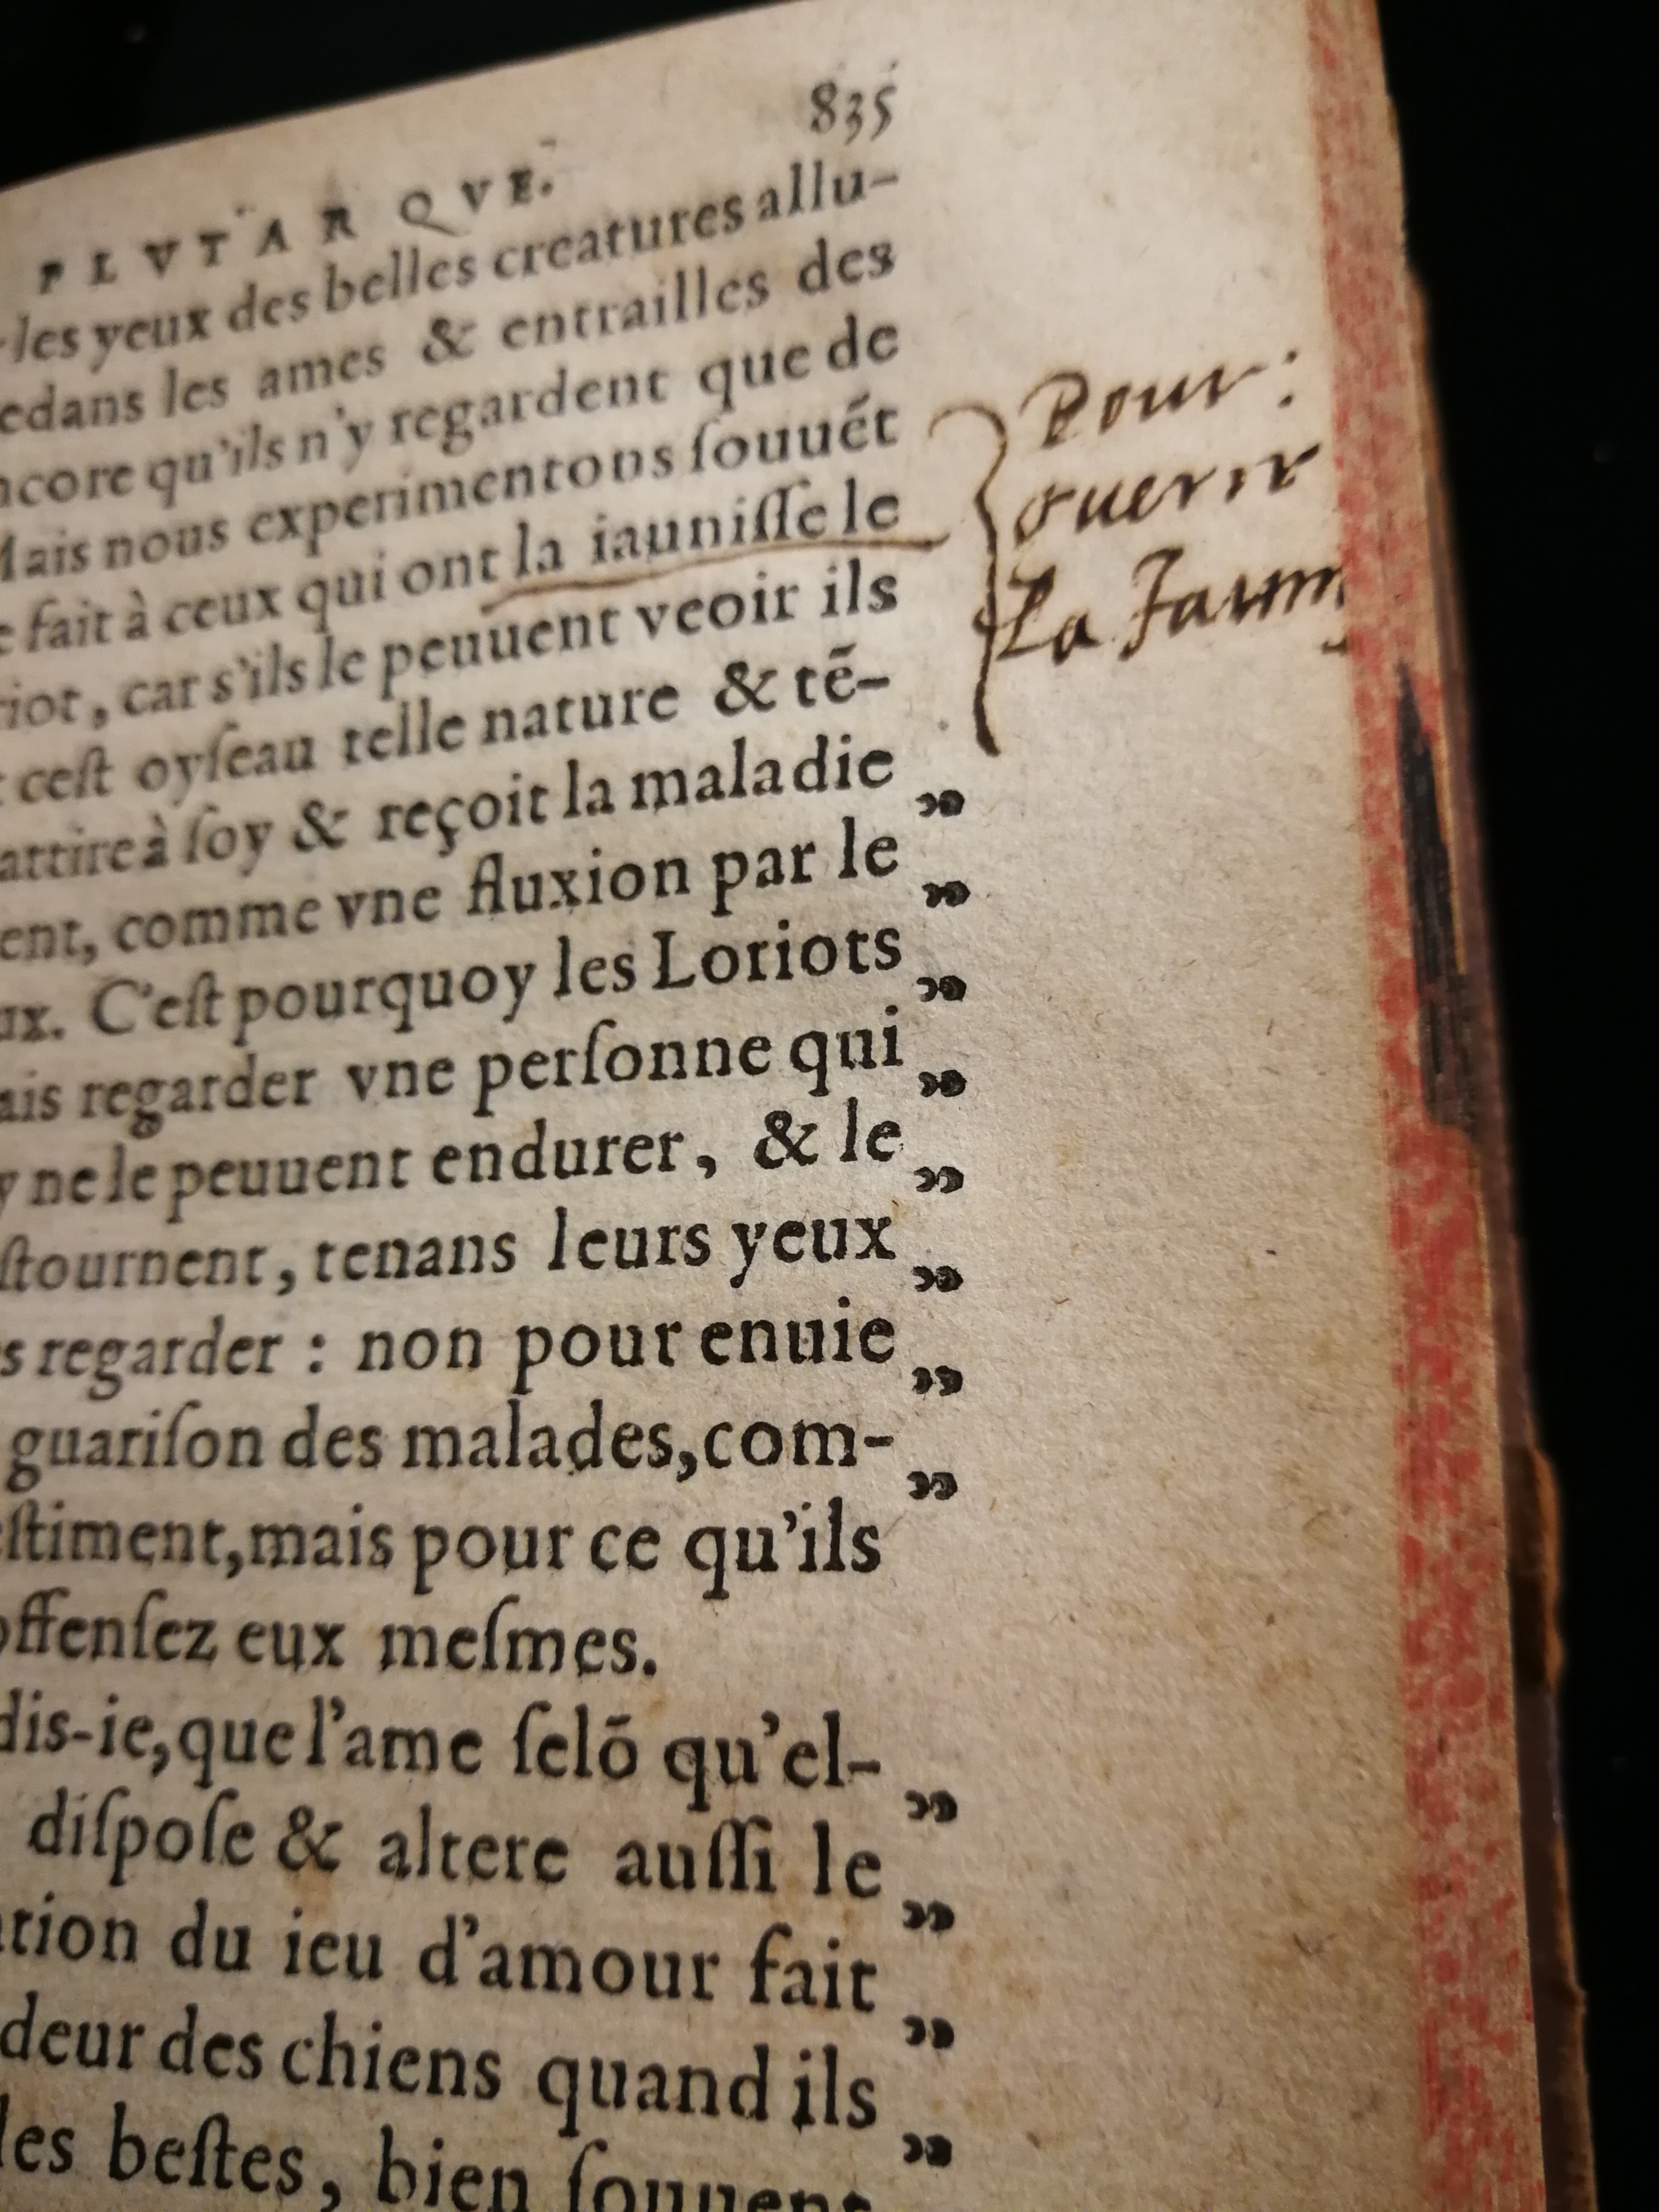 835
PLVTARQVE.
les yeux des belles creatures allu-
edans les ames & entrailles des
ncore qu'ils n'y regardent que de
Mais nous experimentons ſouuẽt
e fait à ceux qui ont la iauniſſe le
riot, car s'ils le peuuent veoir ils
ceſt oyſeau telle nature & tē-
attire à ſoy & reçoit la maladie „
ent, comme vne fluxion par le „
ux. C'eſt pourquoy les Loriots „
ais regarder vne perſonne qui „
y ne le peuuent endurer, & le „
ſtournent, tenans leurs yeux „
s regarder : non pour enuie „
guariſon des malades, com- „
eſtiment, mais pour ce qu'ils
offenſez eux meſmes.
dis-ie, que l'ame ſelō qu'el- „
diſpoſe & altere auſſi le „
ation du ieu d'amour fait „
deur des chiens quand ils „
les beſtes, bien ſouuent
Pour
La